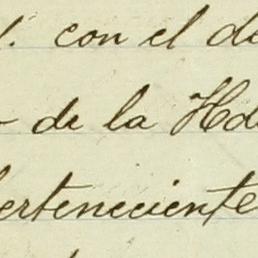 con el
de la
perteneciente